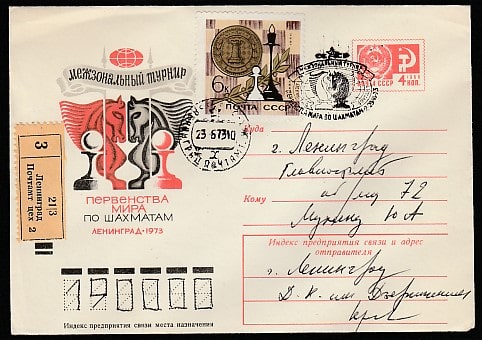 межзональный турнир
ПЕРВЕНСТВА
МИРА
ПО ШАХМАТАМ
ЛЕНИНГРАД • 1973
3
Ленинград
Почтамт цех 2
213
6к
ПОЧТА СССР
23 6 73 10
МЕЖЗОНАЛЬНЫЙ ТУРНИР
МИРА ПО ШАХМАТАМ
1966
ПОЧТА
СССР
4 КОП
Куда
г. Ленинград
Главпочтамт
Кому
72
Мухину Ю А
Индекс предприятия связи и адрес
отправителя
г. Ленинград
Д. К. им Дзержинского
190000
Индекс предприятия связи места назначения